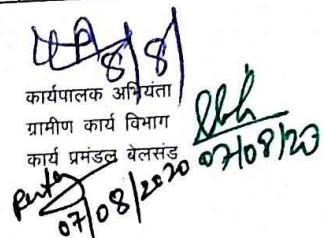 8/8
कार्यपालक अभियंता
ग्रामीण कार्य विभाग
कार्य प्रमंडल बेलसंड
07/08/20
07/08/2020